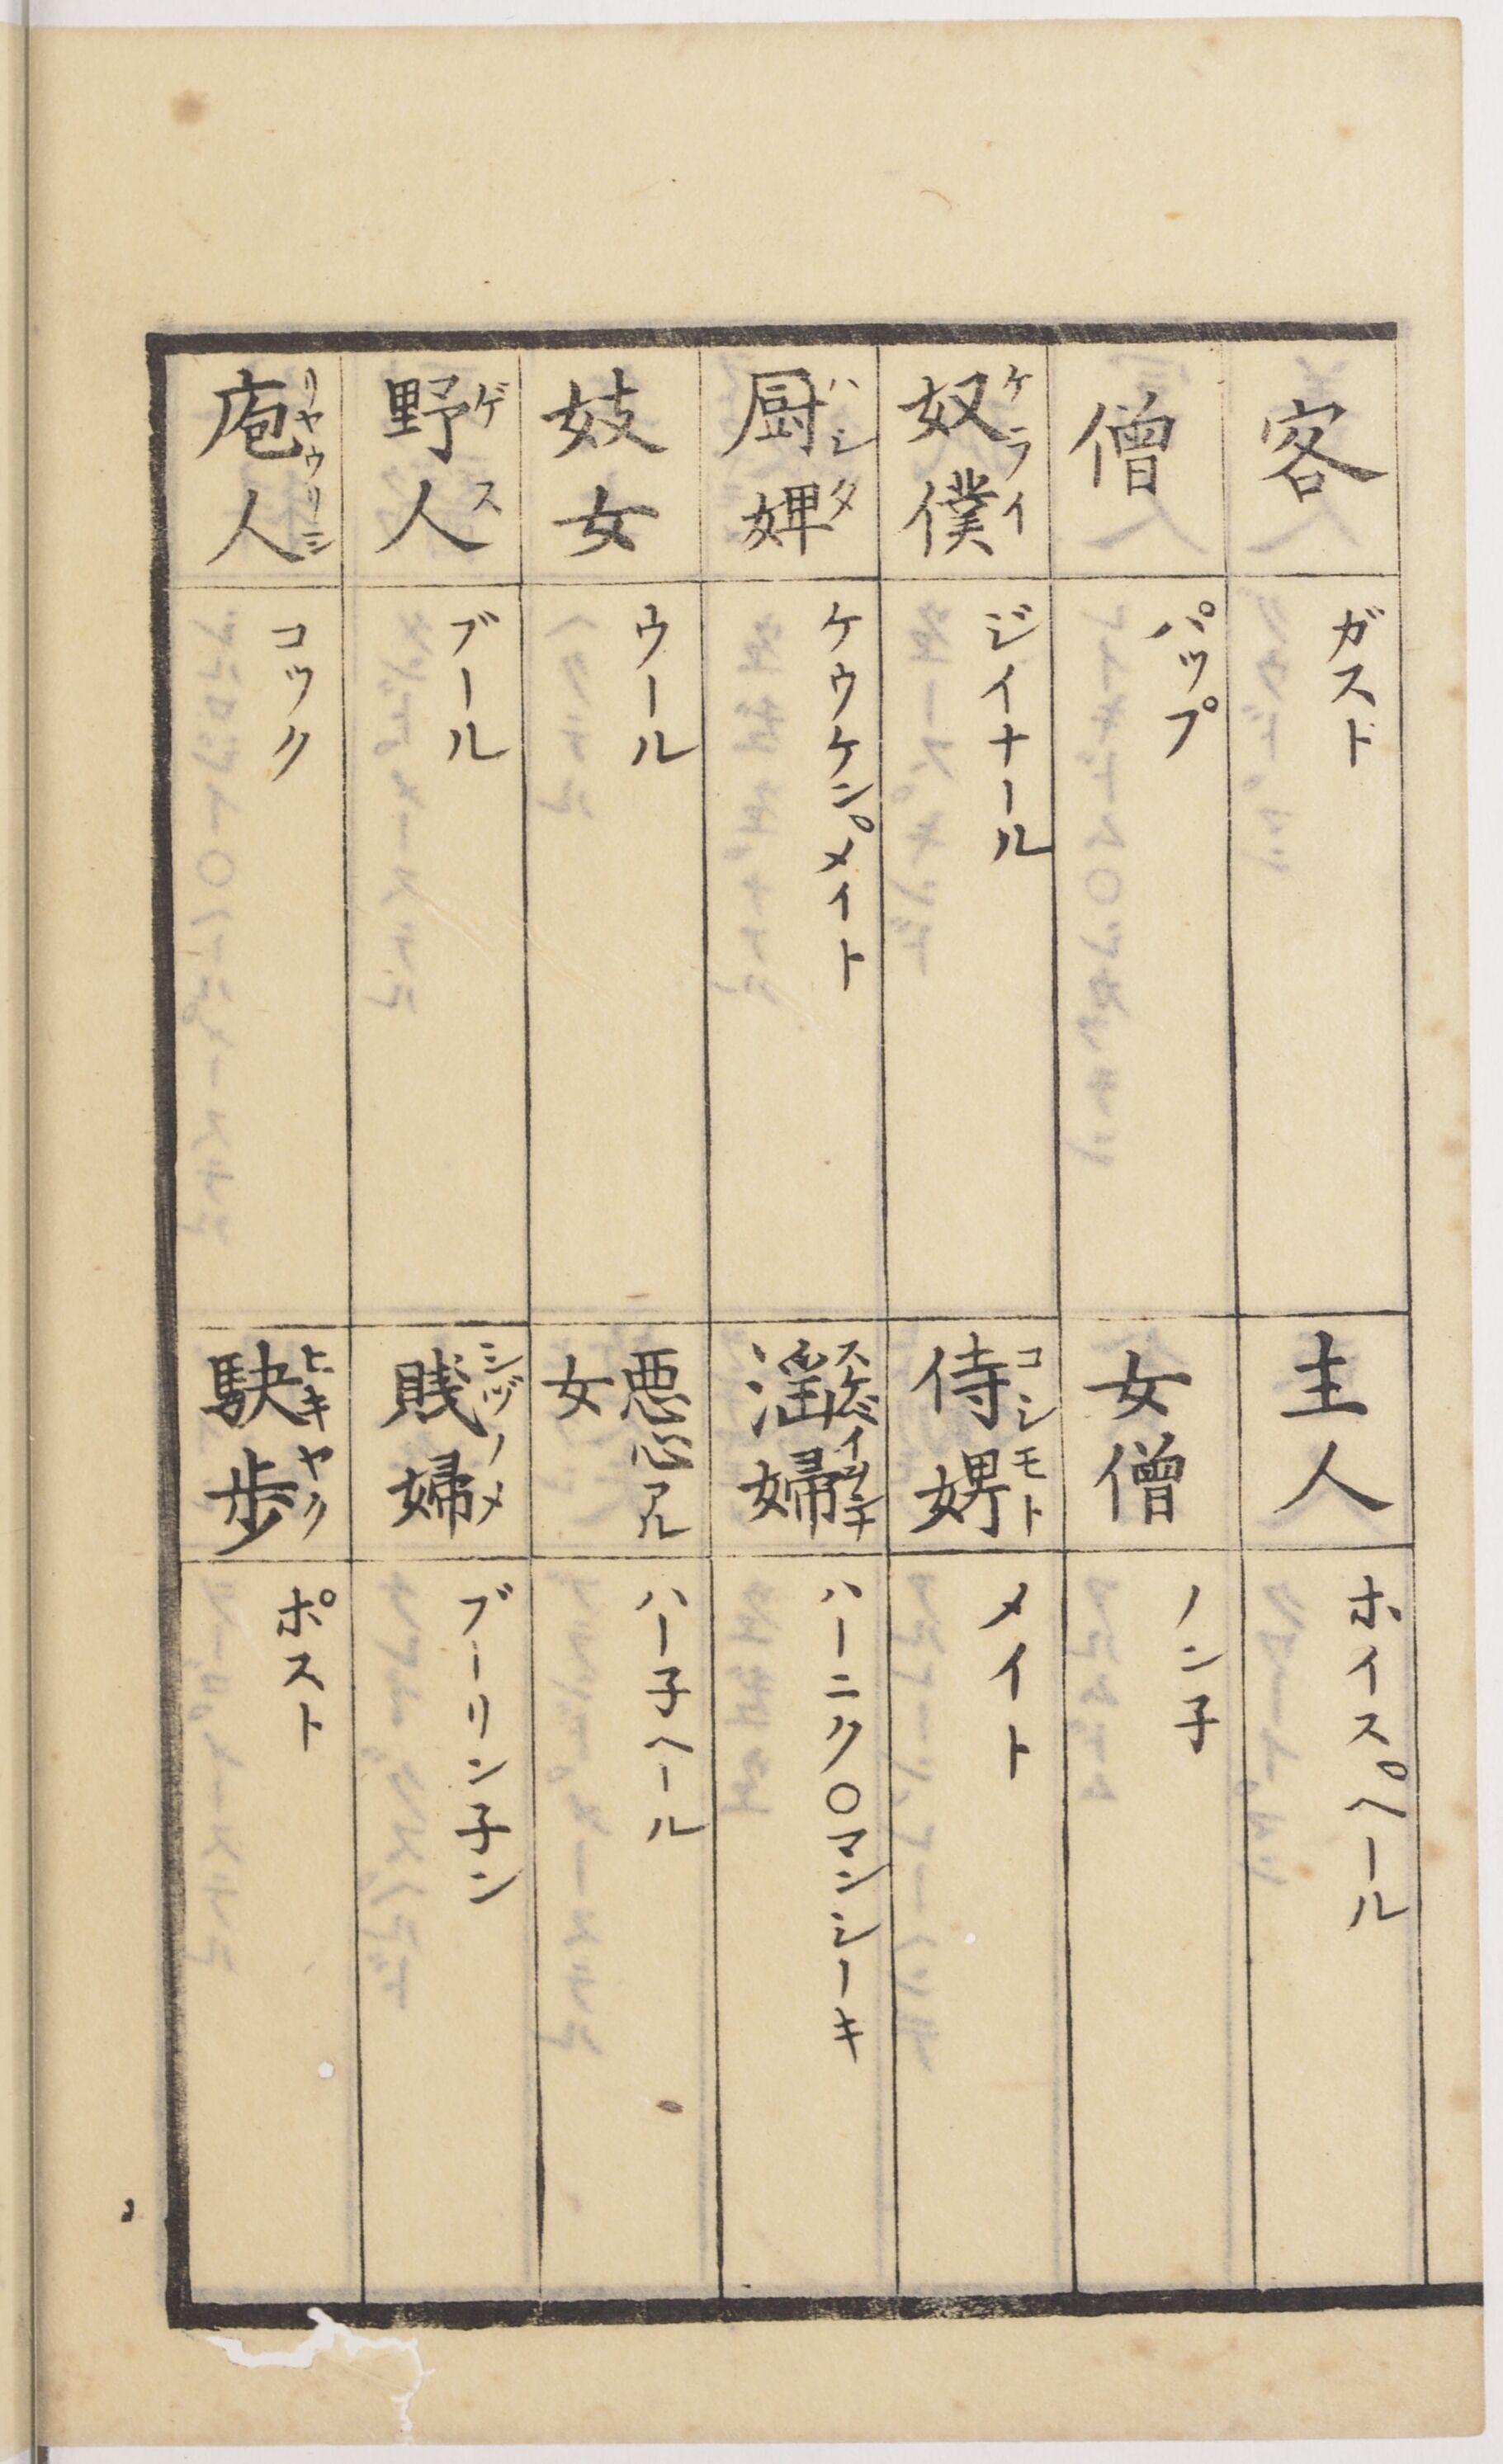 客
ガスド
主人
ホイス゚ヘール
僧
パップ
女僧
ノン子
奴僕 ケライ
ジイナール
侍婢 コシモト
メイト
厨婢 ハシタ
ケウケン゚メイト
淫婦
ハーニク〇マンシーキ
妓女
ウール
悪心アル女
ハー子ヘール
野人 ゲス
ブール
賎婦 シヅノメ
ブーリン子ン
庖人 リヤウリニン
コック
駃歩 ヒキヤク
ポスト